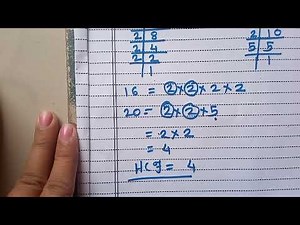 2 8 2 10
2 4 5 5
2 2 1
1
16 = 2×2×2×2
20 = 2×2×5
= 2×2
= 4
HCF = 4